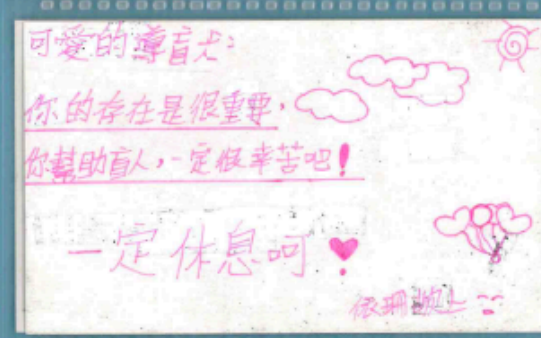 可愛的導盲犬:
你的存在是很重要,
你幫助盲人,一定很辛苦吧!
一定休息呵
依珊